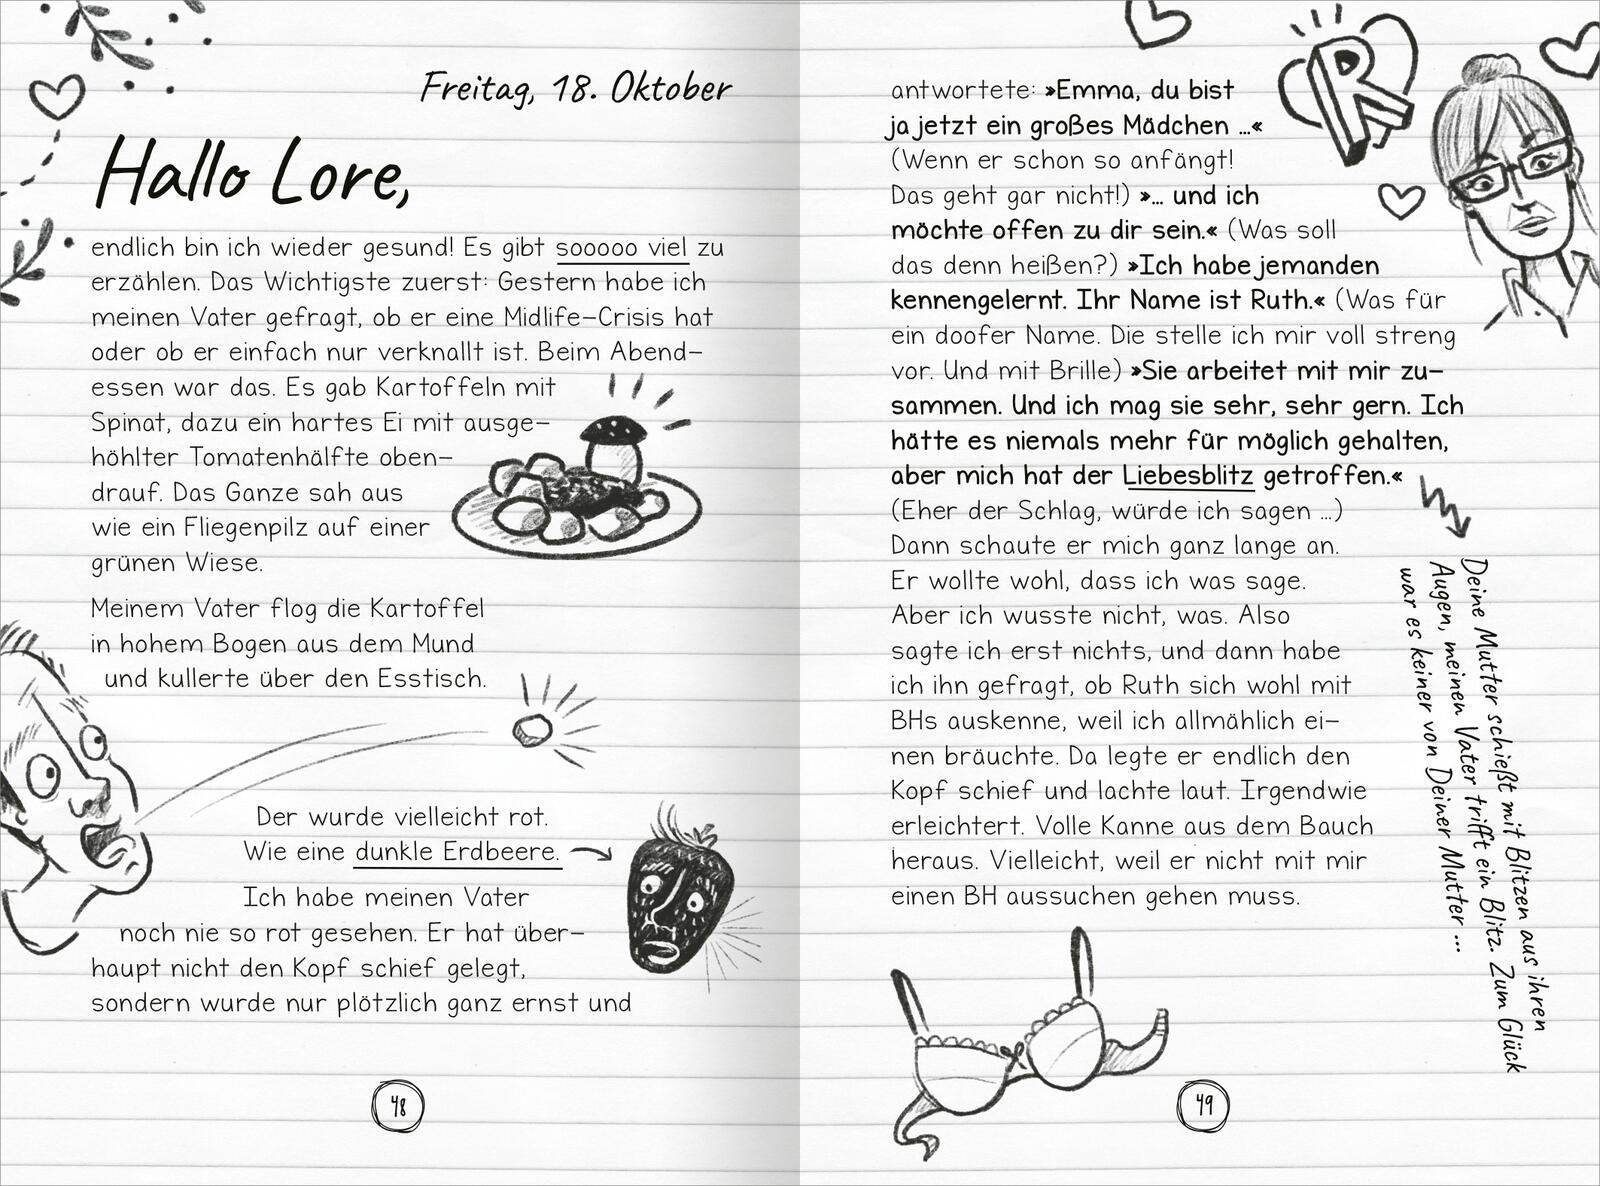 Freitag, 18. Oktober
Hallo Lore,
endlich bin ich wieder gesund! Es gibt sooooo viel zu
erzählen. Das Wichtigste zuerst: Gestern habe ich
meinen Vater gefragt, ob er eine Midlife-Crisis hat
oder ob er einfach nur verknallt ist. Beim Abend-
essen war das. Es gab Kartoffeln mit
Spinat, dazu ein hartes Ei mit ausge-
höhlter Tomatenhälfte oben-
drauf. Das Ganze sah aus
wie ein Fliegenpilz auf einer
grünen Wiese.
Meinem Vater flog die Kartoffel
in hohem Bogen aus dem Mund
und kullerte über den Esstisch.
Der wurde vielleicht rot.
Wie eine dunkle Erdbeere.
Ich habe meinen Vater
noch nie so rot gesehen. Er hat über-
haupt nicht den Kopf schief gelegt,
sondern wurde nur plötzlich ganz ernst und
48
antwortete: »Emma, du bist
ja jetzt ein großes Mädchen ...«
(Wenn er schon so anfängt!
Das geht gar nicht!) »... und ich
möchte offen zu dir sein.« (Was soll
das denn heißen?) »Ich habe jemanden
kennengelernt. Ihr Name ist Ruth.« (Was für
ein doofer Name. Die stelle ich mir voll streng
vor. Und mit Brille) »Sie arbeitet mit mir zu-
sammen. Und ich mag sie sehr, sehr gern. Ich
hätte es niemals mehr für möglich gehalten,
aber mich hat der Liebesblitz getroffen.«
(Eher der Schlag, würde ich sagen ...)
Dann schaute er mich ganz lange an.
Er wollte wohl, dass ich was sage.
Aber ich wusste nicht, was. Also
sagte ich erst nichts, und dann habe
ich ihn gefragt, ob Ruth sich wohl mit
BHs auskenne, weil ich allmählich ei-
nen bräuchte. Da legte er endlich den
Kopf schief und lachte laut. Irgendwie
erleichtert. Volle Kanne aus dem Bauch
heraus. Vielleicht, weil er nicht mit mir
einen BH aussuchen gehen muss.
R
Deine Mutter schießt mit Blitzen aus ihren
Augen, meinen Vater trifft ein Blitz. Zum Glück
war es keiner von Deiner Mutter ...
49